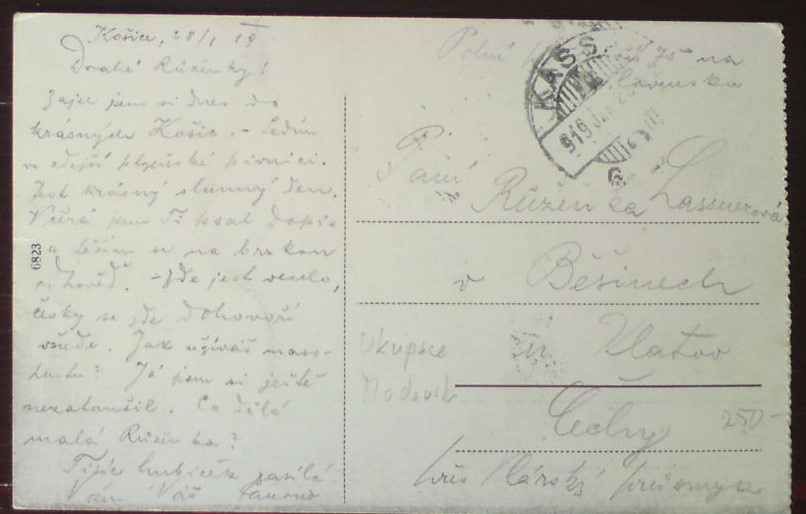 Košice, 28/1 19
Drahá Růženky!
Zajel jsem si dnes do
krásných Košic. – Sedím
v zdejší plzeňské pivnici.
Jest krásný slunný den.
Včera jsem Ti psal dopis
a těším se na brzkou
odpověď. – Zde jest veselo,
česky se zde dohovoří
všude. Jak užíváš
Já jsem si ještě
nezatančil. Co dělá
malá Růženka?
Tisíc hubiček zasílá
Vám Váš
6823
Polní na
Slovensku
KASS
919
G
Paní
Růženka
v Běšinech
u Klatov
Čechy
Okupace
Maďarsk
250-